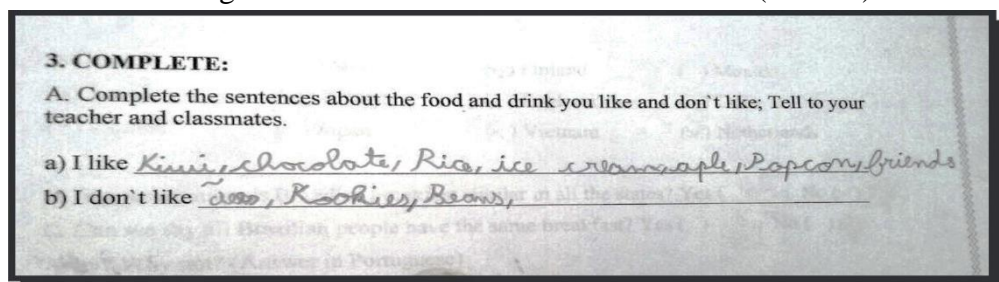 3. COMPLETE:
A. Complete the sentences about the food and drink you like and don`t like; Tell to your
teacher and classmates.
a) I like Kiwi, chocolate, Rice, ice cream, aple, Popcon, friends
b) I don`t like Kookies, Beans,